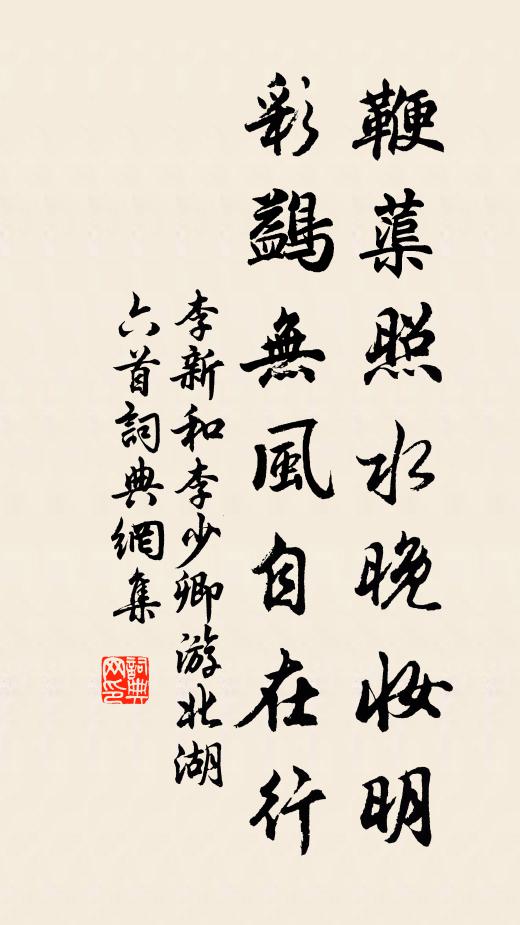 鞭蕖照水晚妆明
彩鷁無風自在行
李新和李少卿游北湖
六首詞典網集
詞典网印